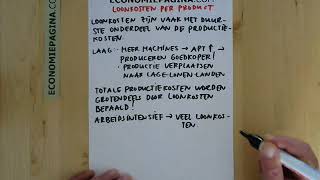 ECONOMIEPAGINA.COM
LOONKOSTEN PER PRODUCT
LOONKOSTEN ZIJN VAAK HET DUUR-
STE ONDERDEEL VAN DE PRODUCTIE-
KOSTEN.
LAAG: • MEER MACHINES → APT ↑ →
PRODUCEREN GOEDKOPER!
• PRODUCTIE VERPLAATSEN
NAAR LAGE-LONEN-LANDEN
TOTALE PRODUCTIEKOSTEN WORDEN
GROTENDEELS DOOR LOONKOSTEN
BEPAALD!
ARBEIDSINTENSIEF → VEEL LOONKOS-
TEN.
ECONOMIEPAGINA.COM